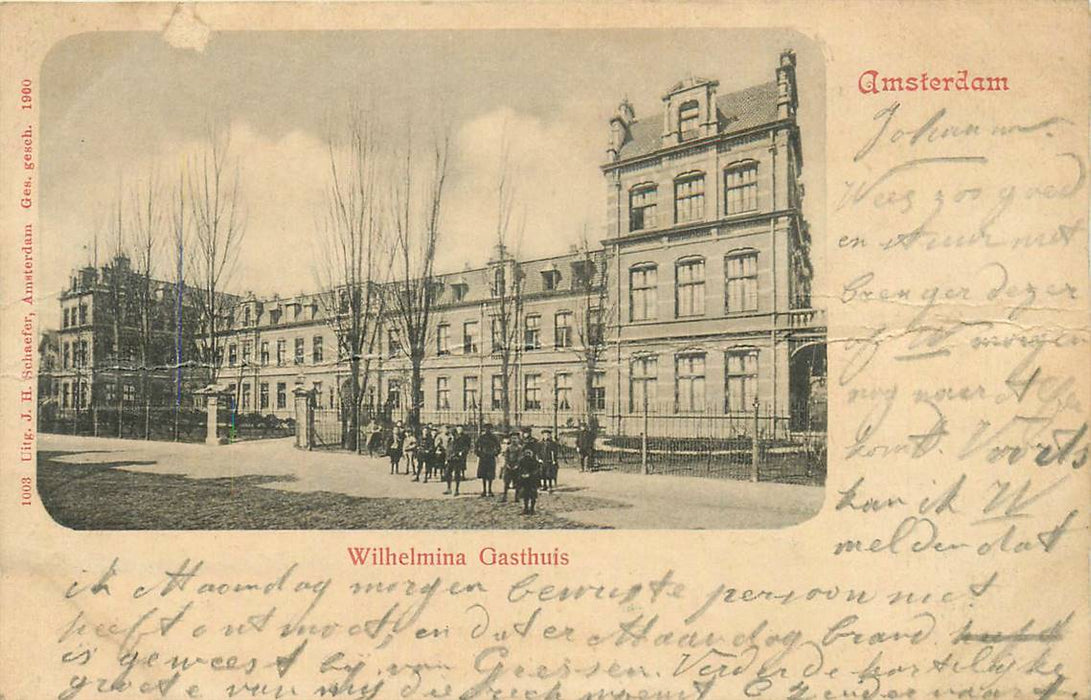 Amsterdam
Johan
Wees zoo goed
en stuur met
brenger dezer
of U morgen
nog naar A
komt. Voorts
kan ik U
melden dat
1003 Uitg. J. H. Schaefer, Amsterdam Ges. gesch. 1900
Wilhelmina Gasthuis
ik Maandag morgen bewuste persoon niet
heeft ontmoet, en dat er Maandag brand
is geweest bij van Verder de hartelijke
groete van mij die zich noemt